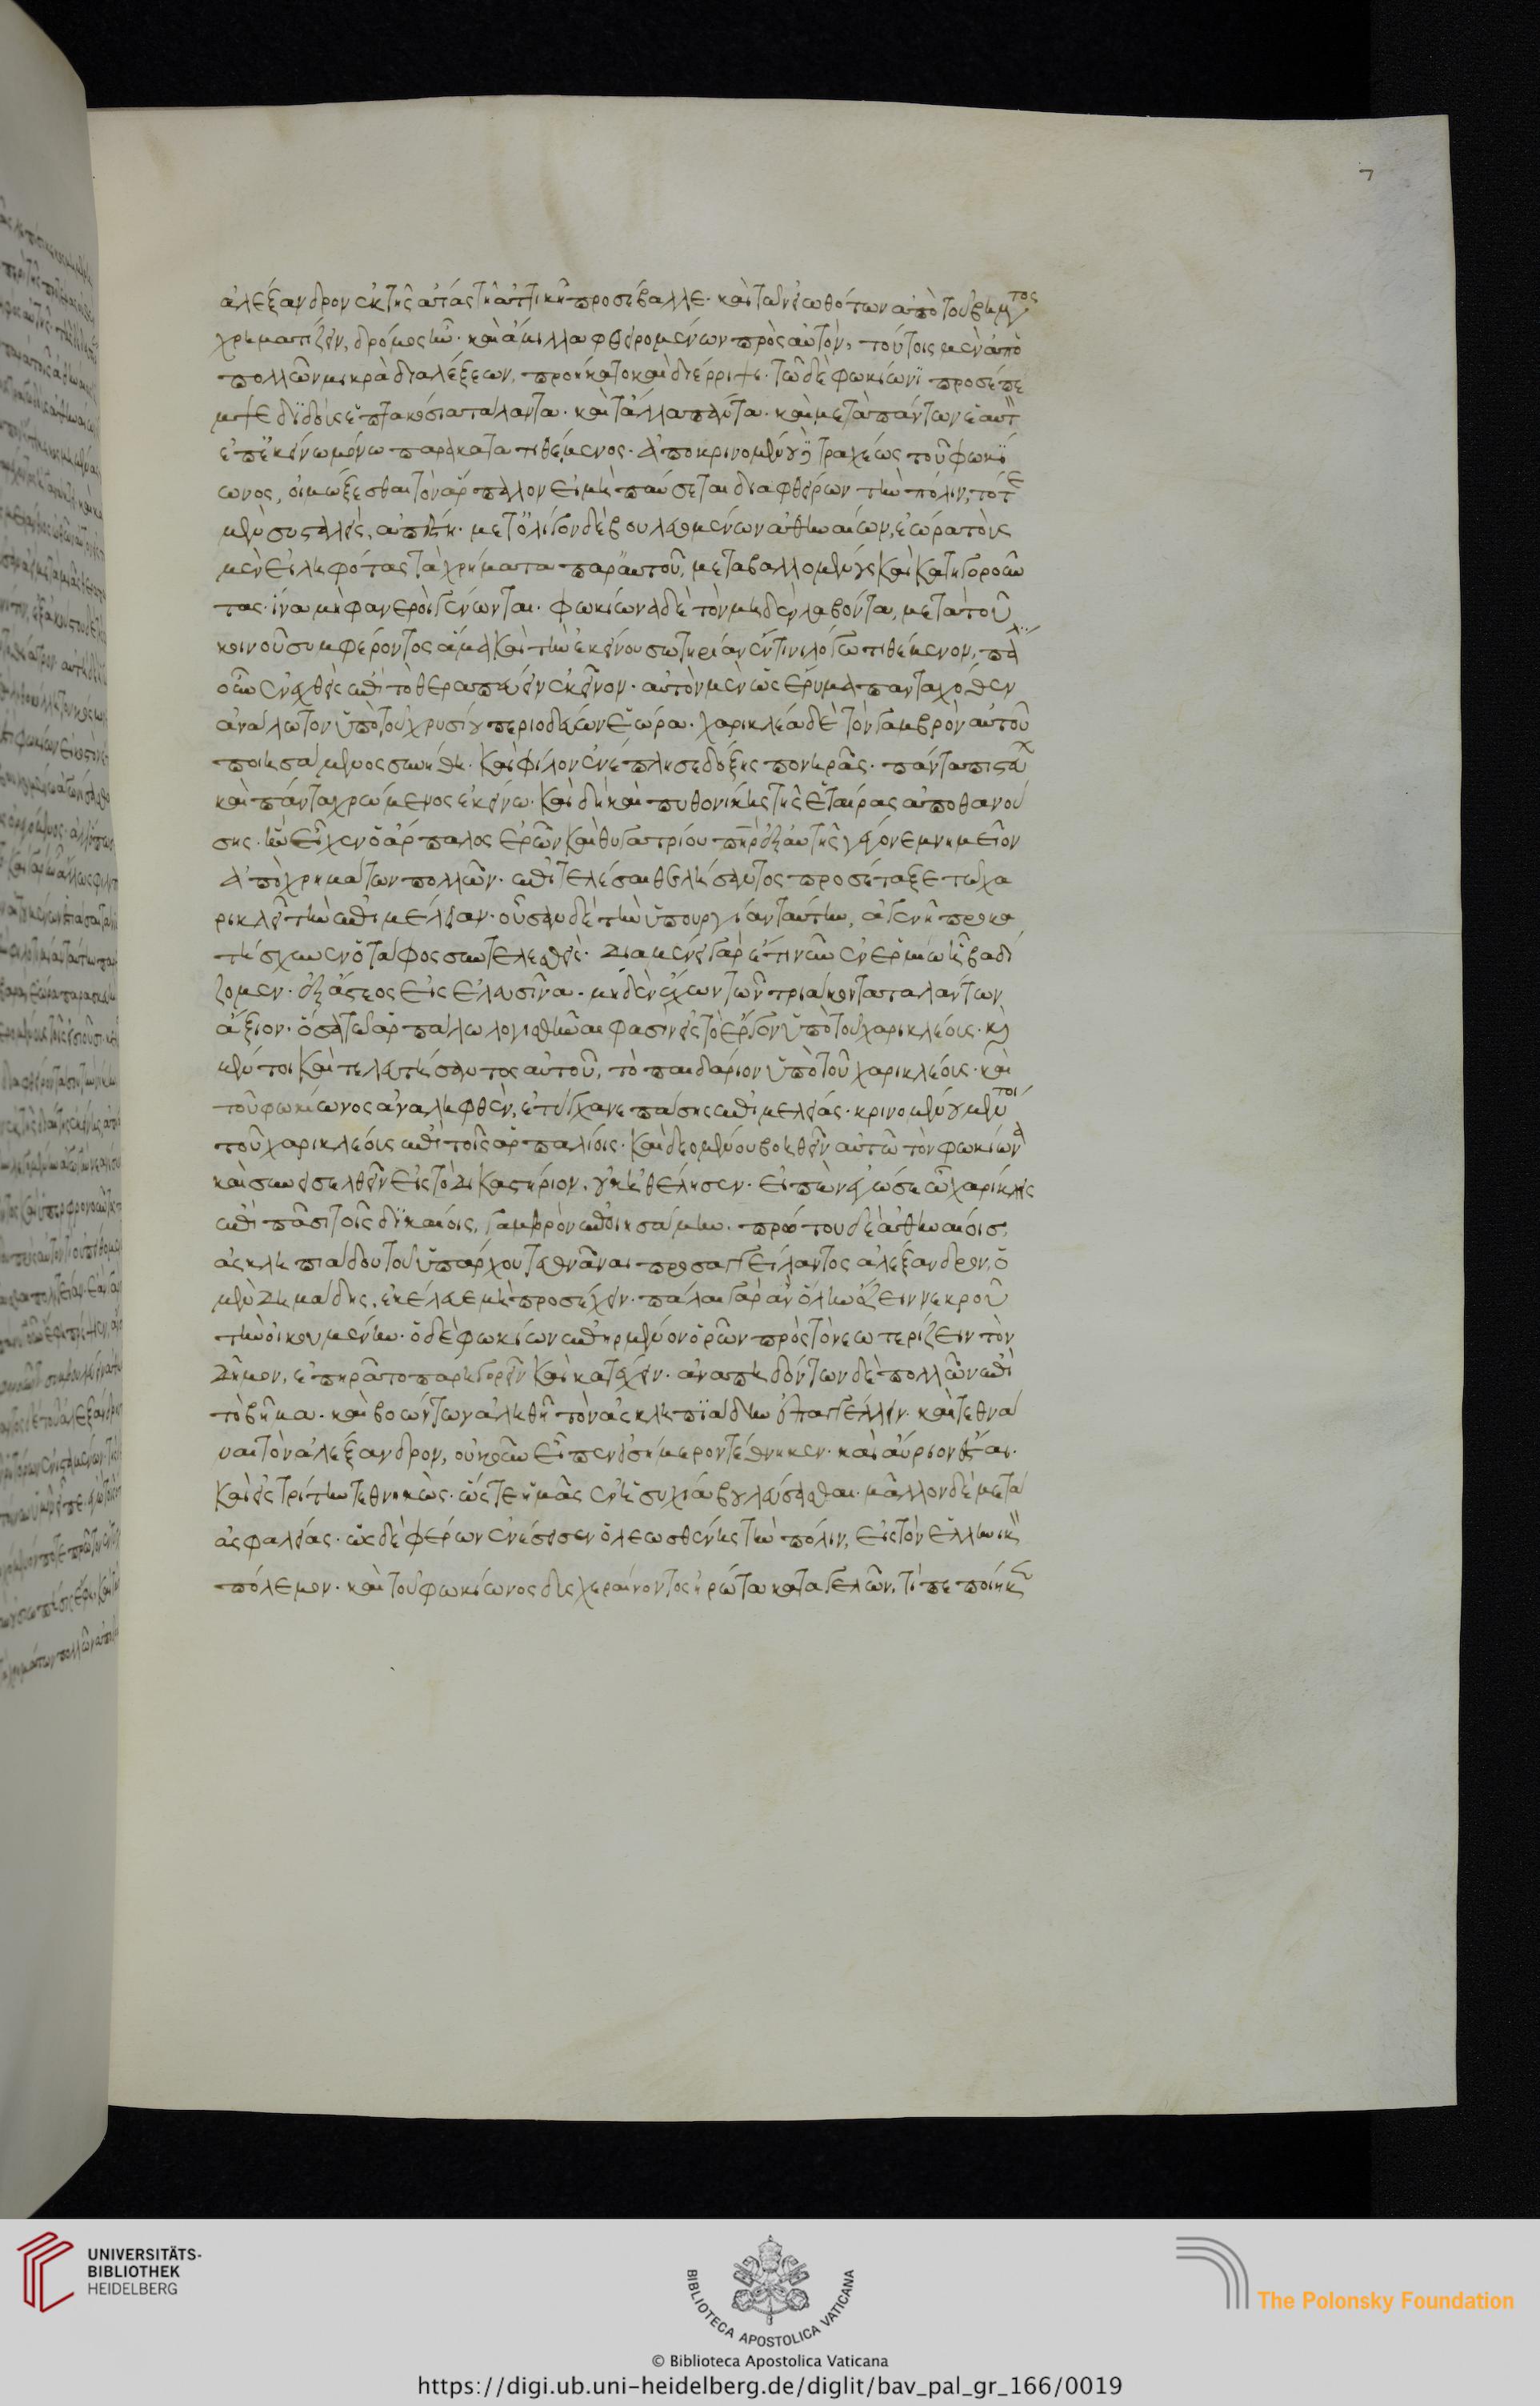 ἀλέξανδρον ἐκ τῆς ἀσίας τῆ ἀττικῆ προσέβαλλε· καὶ τῶν εἰωθότων ἀπὸ τοῦ βήματος
χρηματίζειν, δρόμος ἦν· καὶ ἅμιλλα φθειρομένων πρὸς αὐτὸν, τούτοις μὲν ἀπὸ
πολλῶν μικρὰ διαλέξεων, προήκατο καὶ διέρριψε· τῶ δὲ φωκίωνϊ προσέπε
μψε διδοὺς ἑπτακόσια τάλαντα· καὶ τἄλλα πάντα· καὶ μετὰ πάντων ἑαυτὸν
ἐπ' ἐκείνω μόνω παρακατατιθέμενος· ἀποκρινομένου δὲ τραχέως τοῦ φωκϊ
ωνος, οἰμώξεσθαι τὸν ἅρπαλον εἰ μὴ παύσεται διαφθείρων τὴν πόλιν, τότε
μὲν συσταλεὶς, ἀπέστη· μετ' ὀλίγον δὲ βουλευομένων ἀθηναίων, ἑώρα τοὺς
μὲν εἰληφότας τὰ χρήματα παρ' αὐτοῦ, μεταβαλλομένους καὶ κατηγοροῦν
τας· ἵνα μὴ φανεροὶ γένωνται· φωκίωνα δὲ τὸν μηδὲν λαβόντα, μετὰ τοῦ
κοινοῦ συμφέροντος ἅμα καὶ τὴν ἐκείνου σωτηρίαν ἔν τινι λόγω τιθέμενον, πάλιν
οὖν ἐνεχθεὶς ἐπὶ τὸ θεραπεύειν ἐκεῖνον· αὐτὸν μὲν ὡς ἔρυμα πανταχόθεν
ἀνάλωτον ὑπὸ τοῦ χρυσίου περιοδεύων ἑώρα· χαρικλέα δὲ τὸν γαμβρὸν αὐτοῦ
ποιησάμενος συνήθη· καὶ φίλον ἐνέπλησε δόξης πονηρᾶς· πάντα πιστεύων
καὶ πάντα χρώμενος ἐκείνω· καὶ δὴ καὶ πυθονίκης τῆς ἑταίρας ἀποθανού
σης· ἣν εἶχεν ὁ ἅρπαλος ἐρῶν καὶ θυγατρίου πατὴρ ἐξ αὐτῆς γέγονε μνημεῖον
ἀπὸ χρημάτων πολλῶν· ἐπιτελέσαι θελήσαντος προσέταξε τῶ χα
ρικλεῖ τὴν ἐπιμέλειαν· οὖσαν δὲ τὴν ὑπουργίαν ταύτην, ἀγενῆ προσκα
τήσχυνεν ὁ τάφος συντελεσθεὶς· διαμένει γὰρ ἔτι νῦν ἐν ἑρμείω ἧ βαδί
ζομεν· ἐξ ἄστεος εἰς ἐλευσῖνα· μηδὲν ἔχων τῶν τριάκοντα ταλάντων
ἄξιον· ὅσα τῶ ἁρπάλω λογισθῆναι φασὶν εἰς τὸ ἔργον ὑπὸ τοῦ χαρικλέους· καὶ
μέντοι καὶ τελευτήσαντος αὐτοῦ, τὸ παιδάριον ὑπὸ τοῦ χαρικλέους· καὶ
τοῦ φωκίωνος ἀναληφθὲν, ἐτύγχανε πάσης ἐπιμελείας· κρινομένου μέντοι
τοῦ χαρικλέους ἐπὶ τοῖς ἁρπαλίοις· καὶ δεομένου βοηθεῖν αὐτῶ τὸν φωκίωνα
καὶ συνεισελθεῖν εἰς τὸ δικαστήριον, οὐκ ἠθέλησεν· εἰπὼν ἐγώ σε ὦ χαρίκλεις
ἐπὶ πᾶσι τοῖς δικαίοις, γαμβρὸν ἐποιησάμην· πρώτου δὲ ἀθηναίοις,
ἀσκληπιάδου τοῦ ἱππάρχου τεθνᾶναι προσαγγείλαντος ἀλέξανδρον, ὁ
μὲν δημάδης, ἐκέλευε μὴ προσέχειν· πάλαι γὰρ ἂν ὅλην ὄζειν νεκροῦ
τὴν οἰκουμένην· ὁ δὲ φωκίων ἐπηρμένον ὁρῶν πρὸς τὸ νεωτερίζειν τὸν
δῆμον, ἐπειρᾶτο παρηγορεῖν καὶ κατέχειν· ἀναπηδόντων δὲ πολλῶν ἐπὶ
τὸ βῆμα· καὶ βοώντων ἀληθῆ τὸν ἀσκληπϊάδην ἀπαγγέλλειν· καὶ τεθνά
ναι τὸν ἀλέξανδρον, οὐκοῦν εἶπεν εἰ σήμερον τέθνηκεν· καὶ αὔριον ἔσται·
καὶ εἰς τρίτην τεθνηκὼς· ὥστε ἡμᾶς ἐν ἡσυχία βουλεύσασθαι· μᾶλλον δὲ μετὰ
ἀσφαλείας· ὡς δὲ φέρων ἐνέσεισεν ὁ λεωσθένης τὴν πόλιν, εἰς τὸν ἑλληνικὸν
πόλεμον· καὶ τοῦ φωκίωνος δυσχεραίνοντος ἠρώτα καταγελῶν, τί πεποίηκεν
UNIVERSITÄTS-
BIBLIOTHEK
HEIDELBERG
BIBLIOTECA APOSTOLICA VATICANA
The Polonsky Foundation
© Biblioteca Apostolica Vaticana
https://digi.ub.uni-heidelberg.de/diglit/bav_pal_gr_166/0019